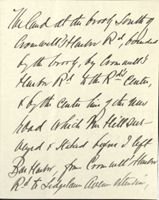 The land at the brook South of
Cromwell's Harbor Rd, bounded
by the brook, by Cromwell's
Harbor Rd to the Rd's Center,
& by the Center line of the new
Road which Mr Hill sur-
veyed & staked before I left
Bar Harbor, from Cromwell's Harbor
Rd to Ledgelawn Avenue extension,